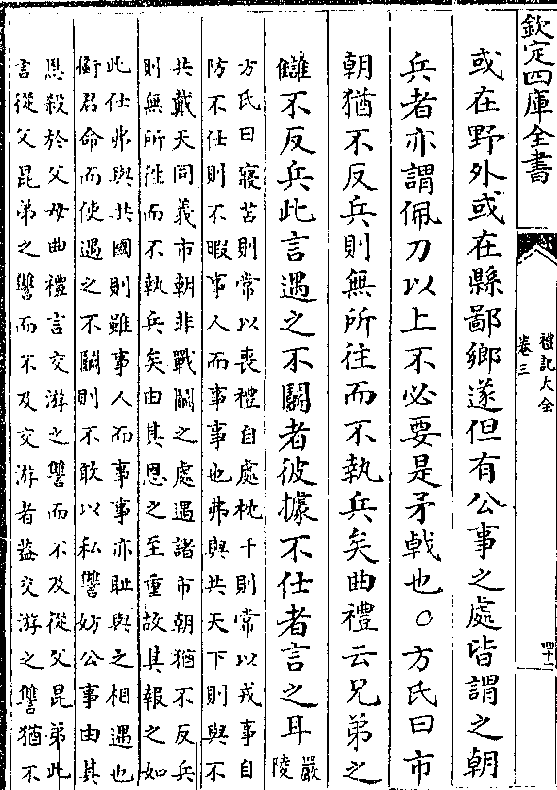 欽定四庫全書
禮記大全
卷三
四十一
或在野外或在縣鄙鄉遂但有公事之處皆謂之朝
兵者亦謂佩刀以上不必要是矛戟也○方氏曰市
朝猶不反兵則無所往而不執兵矣曲禮云兄弟之
讎不反兵此言遇之不鬭者彼據不仕者言之耳
嚴
陵
方氏曰寢苫則常以喪禮自處枕干則常以戎事自
防不仕則不暇事人而事事也弗與共天下則與不
共戴天同義市朝非戰鬭之處遇諸市朝猶不反兵
則無所往而不執兵矣由其恩之至重故其報之如
此仕弗與共國則雖事人而事事亦耻與之相遇也
銜君命而使遇之不鬭則不敢以私讐妨公事由其
恩殺於父母曲禮言交游之讐而不及從父昆弟此
言從父昆弟之讐而不及交游者葢交游之讐猶不